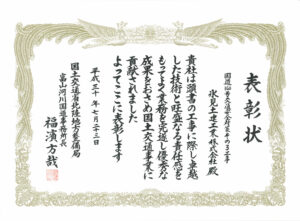 表彰状
国道160号交通安全対策その3工事
氷見土建工業株式会社 殿
貴社は頭書の工事に際し卓越
した技術と旺盛なる責任感を
もってよく業務を完遂し優秀な
成果をおさめ国土交通事業に
貢献されました
よってここに表彰します
平成三十年七月二十三日
国土交通省北陸地方整備局
富山河川国道事務所長
福濱方哉